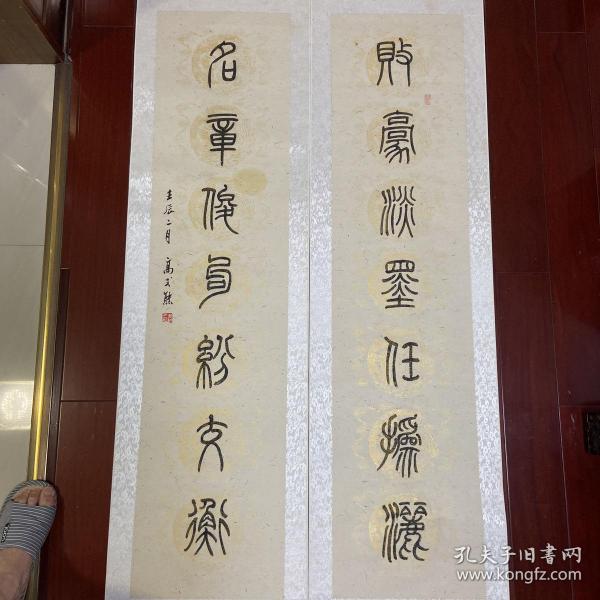 敗豪淡墨任操灑
名章俊句紛交衡
壬辰二月 高式熊
孔夫子旧书网
www.kongfz.com